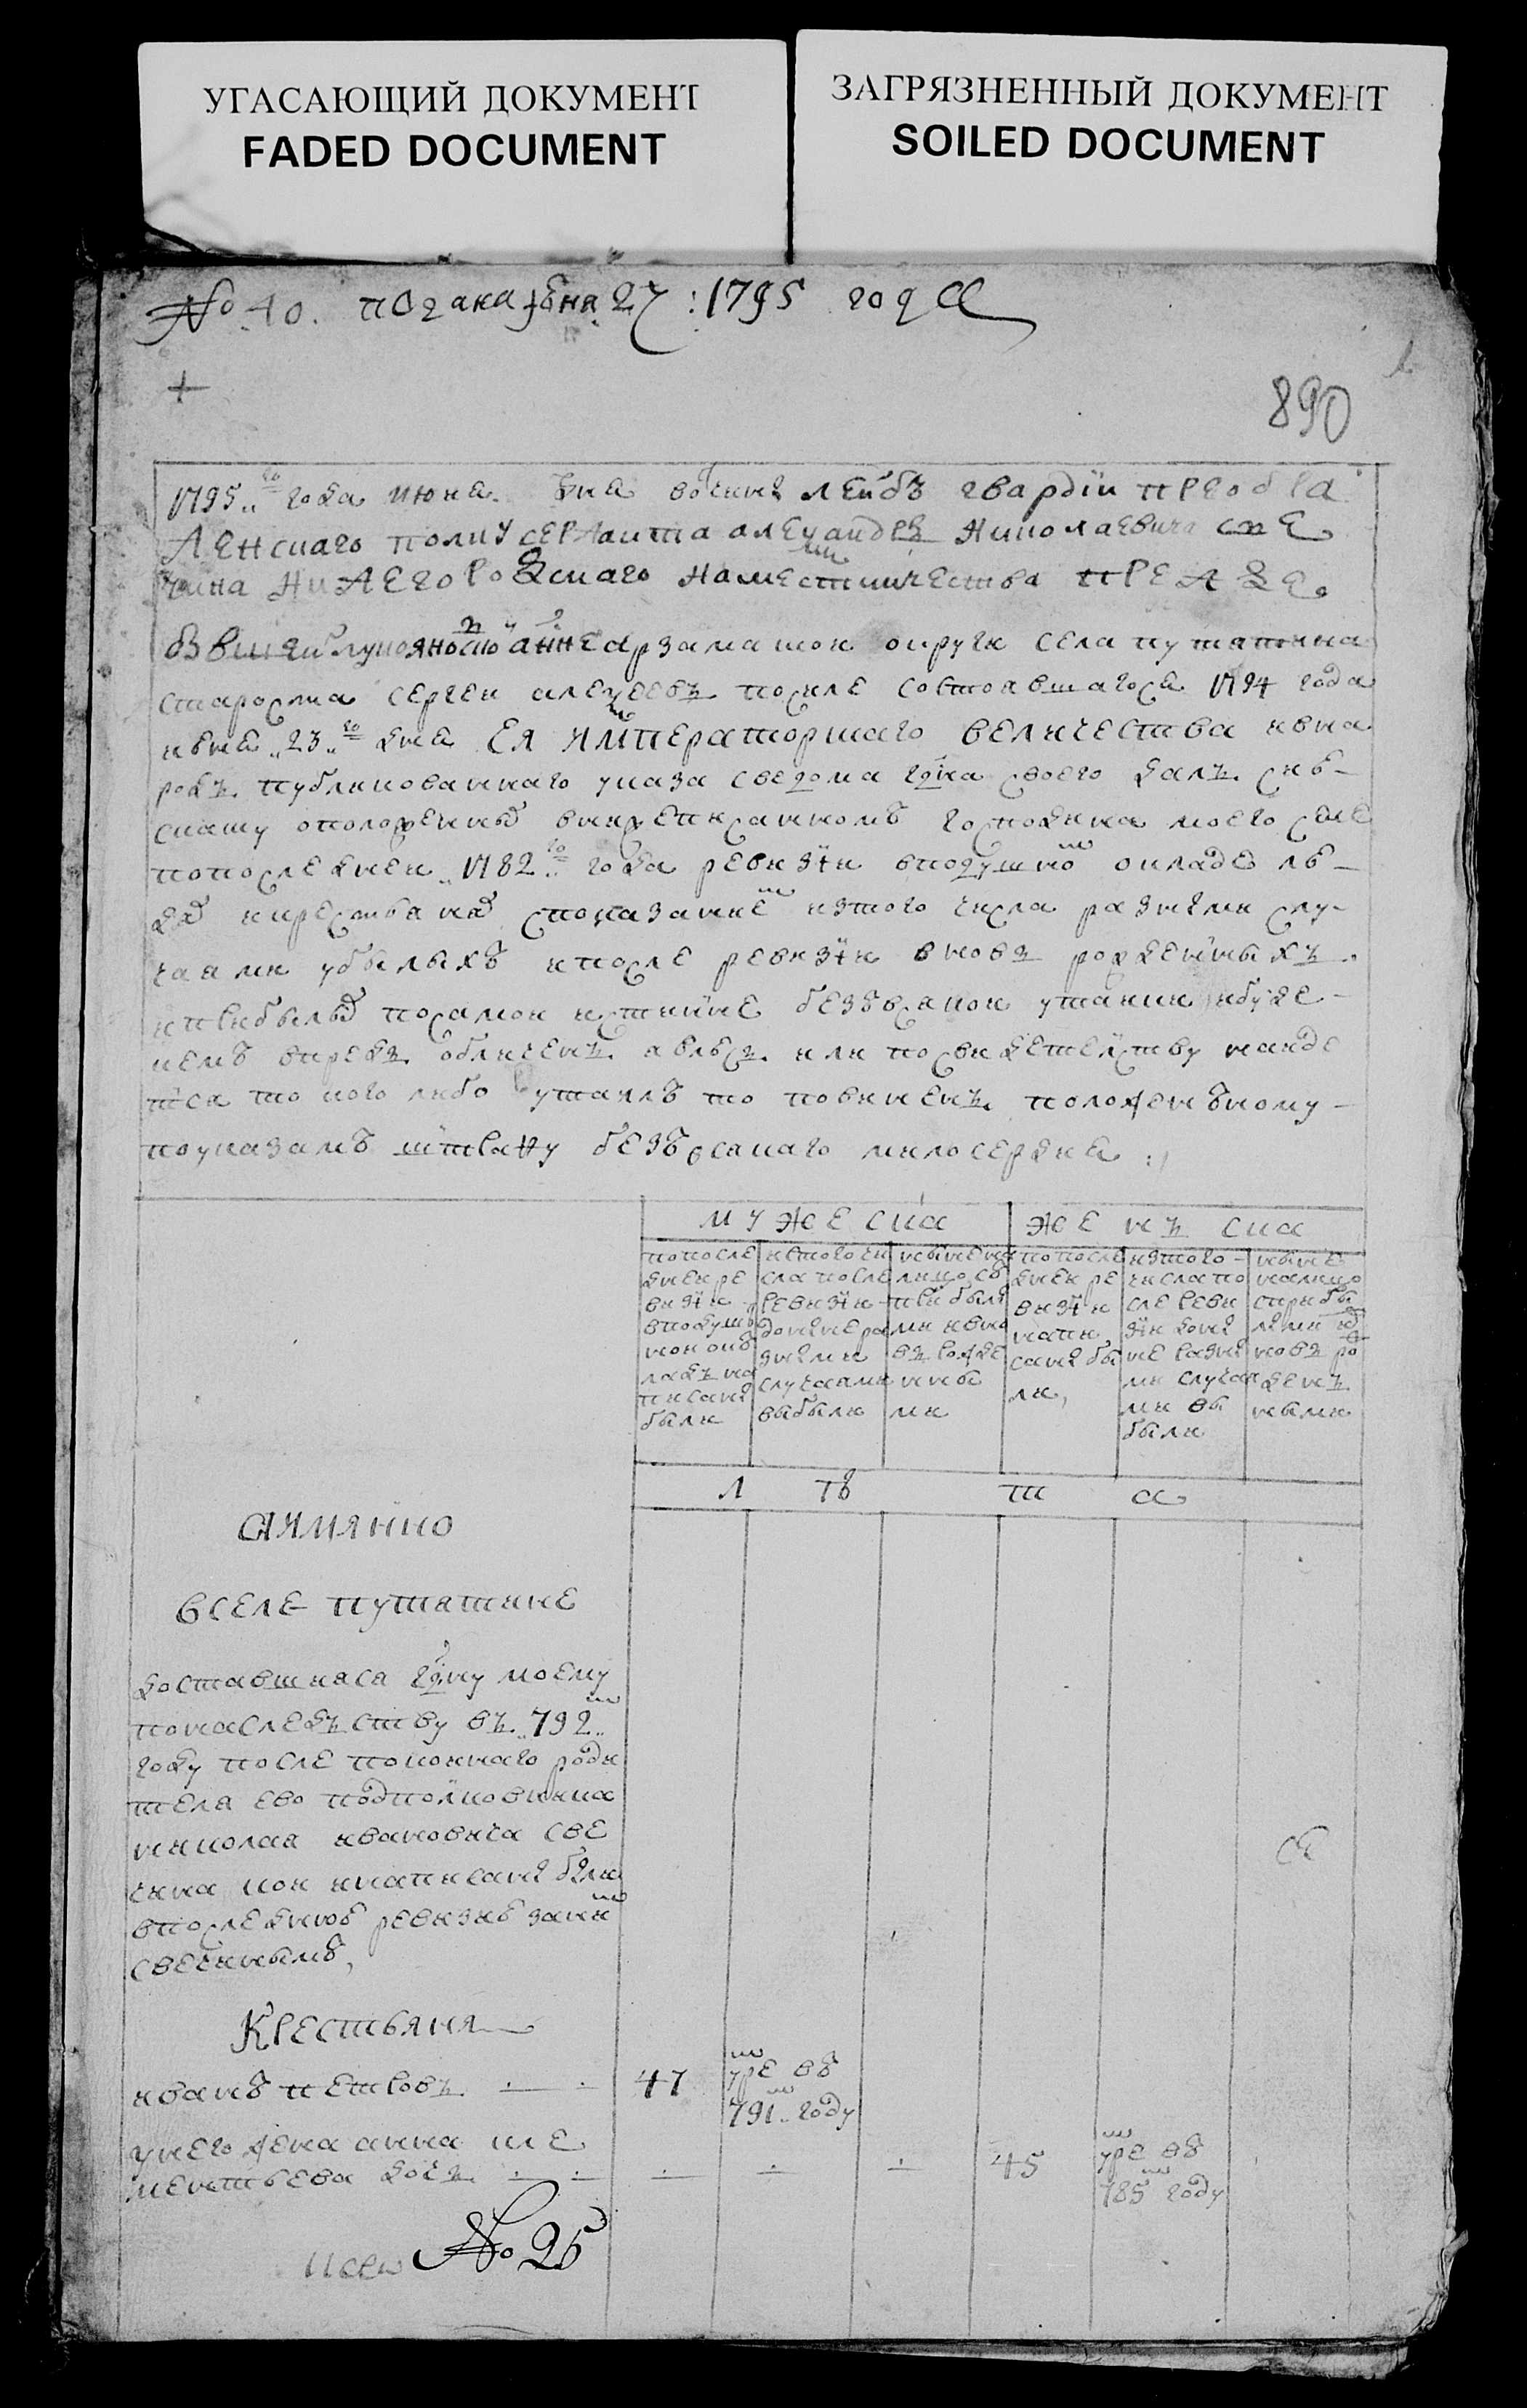 УГАСАЮЩИЙ ДОКУМЕНТ
FADED DOCUMENT
ЗАГРЯЗНЕННЫЙ ДОКУМЕНТ
SOILED DOCUMENT
№ 40. 27 : 1795 года
890
1795 го года июня дня вотчины лейбъ гвардіи преобра
женскаго полку сержанта александръ николаевича све
чина нижегородскаго наместничества прежде
арзамаской округи села путятина
староста сергеи алексеевъ после состоявшагося 1794 года
июня 23 го дня ея императорскаго величества в на
родъ публикованнаго указа сведома гдна своего далъ сию
скаску о положенныхъ вышеписанномъ господина моего селе
по последней 1782 го года ревизіи в подушной окладе лю
дяхъ и крестьянахъ с показаніем изтого числа разными слу
чаями убылыхъ и после ревизіи вновь рожденныхъ
и прибылыхъ по самой истинне безъ всякой утайки и буде
кемъ впредь обличенъ явлюсь или по свидетелству найде
тся что кого либо утаилъ то повиненъ положенному
по указамъ штрафу безъ всякаго милосердия :/
мужеска
женска
по после
дней ре
визіи
в подуш
ной ок
ладъ на
писаны
были
изтого чи
сла после
ревизіи
до ныне ра
зными
случаями
выбыли
ныне на
лицо съ
прибылы
ми и вно
вь рожде
нными
по после
дней ре
визіи
напи
саны бы
ли,
изтого
числа по
сле реви
зіи до ны
не разны
ми случая
ми вы
были
ныне
налицо
с прибы
лыми и
новь ро
жден
ными
л ѣ т а
а имянно
в селе путятине
доставшияся гдну моему
по наследъству въ 792 м
году после покойнаго роди
теля ево подполковника
николая ивановича све
чина кои и написаны были
в последнюю ревизию за нимъ
свечинымъ,
Крестьяня
иванъ петровъ 47 умре въ
791 м году
у него жена анна кле
ментьева дочь 45 умре въ
785 м году
№ 25